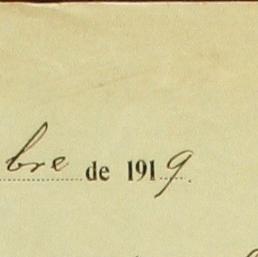 bre de 1919.